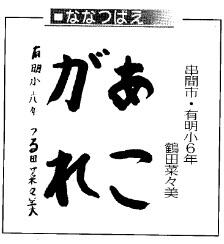 ■ななつばえ
串間市・有明小6年
鶴田菜々美
あこ
がれ
有明小六年 つる田菜々美